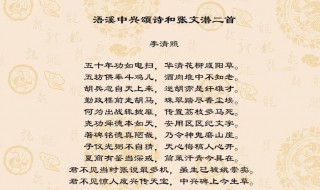 浯溪中兴颂诗和张文潜二首
李清照
五十年功如电扫，华清花柳咸阳草。
五坊供奉斗鸡儿，酒肉堆中不知老。
胡兵忽自天上来，逆胡亦是奸雄才。
勤政楼前走胡马，珠翠踏尽香尘埃。
何为出战辄披靡，传置荔枝多马死。
尧功舜德本如天，安用区区纪文字。
著碑铭德真陋哉，乃令神鬼磨山崖。
子仪光弼不自猜，天心悔祸人心开。
夏商有鉴当深戒，简策汗青今具在。
君不见当时张说最多机，虽生已被姚崇卖。
君不见惊人废兴传天宝，中兴碑上今生草。